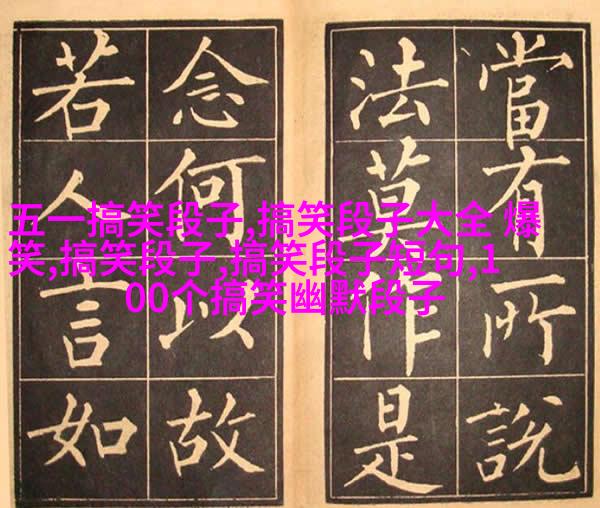 當有所說
法莫作是
念何以故
若人言如
五一搞笑段子,搞笑段子大全 爆
笑,搞笑段子,搞笑段子短句,1
00个搞笑幽默段子